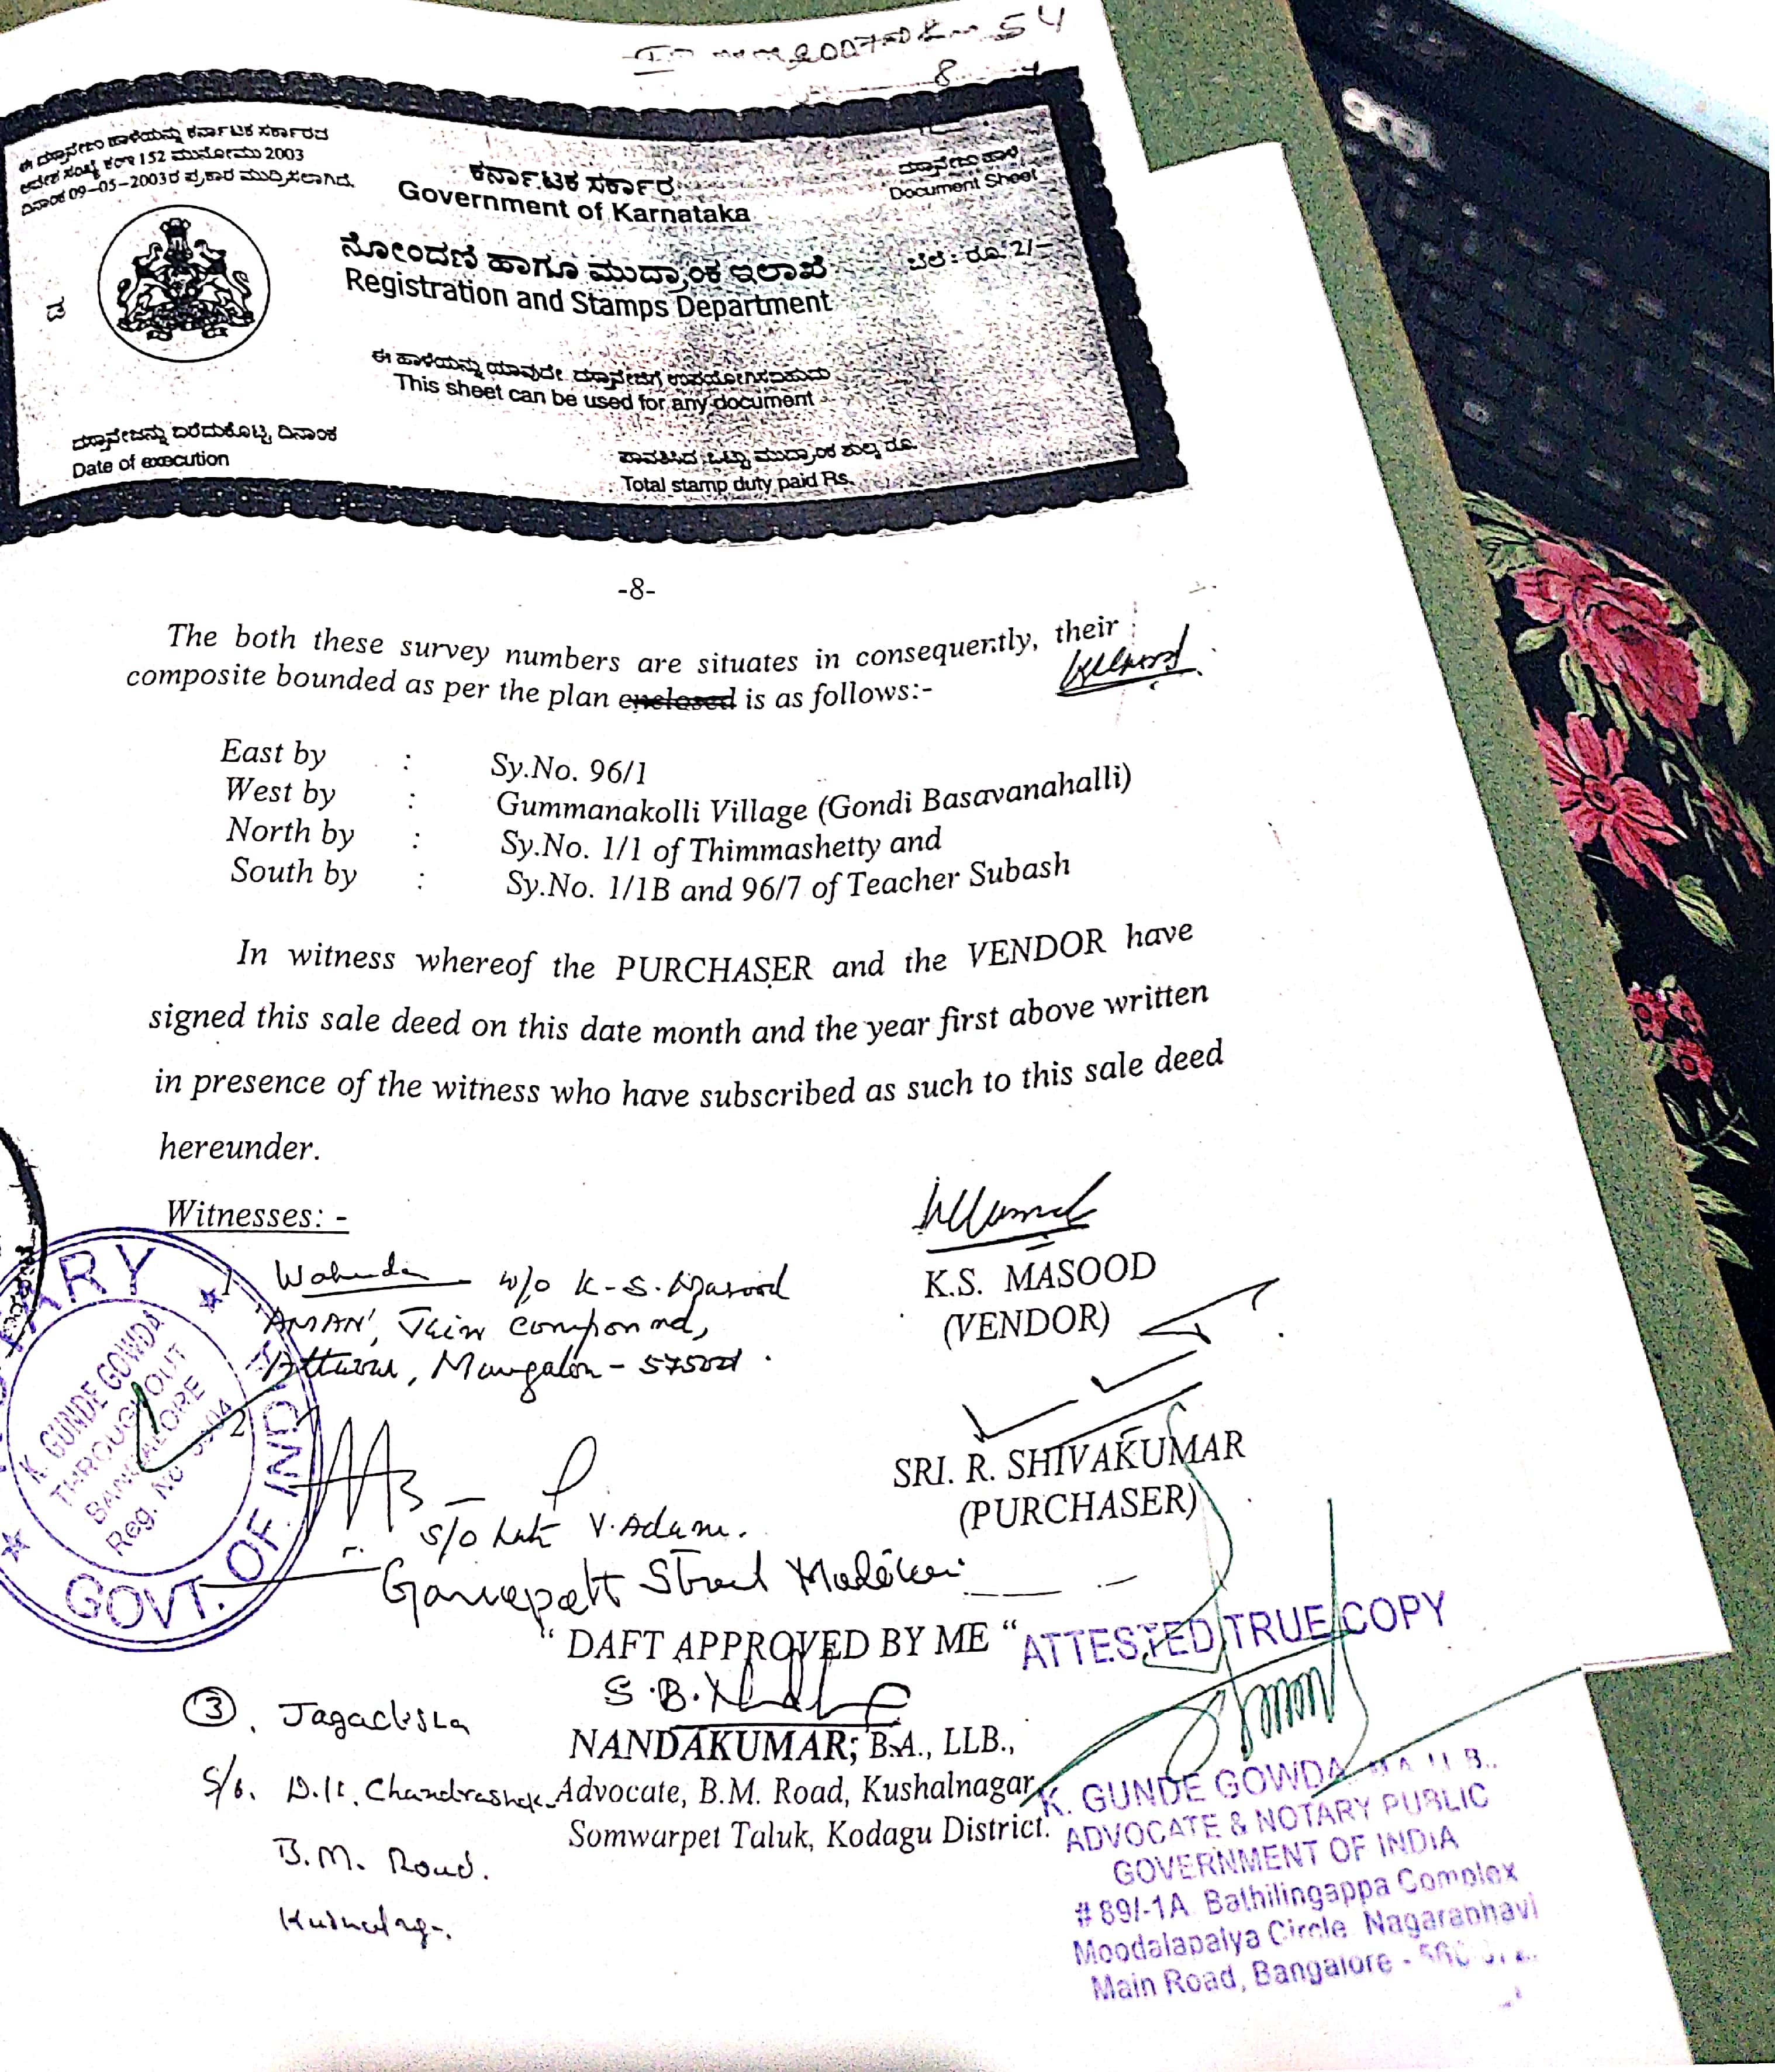 54
8
ಈ ದಸ್ತಾವೇಜು ಹಾಳೆಯನ್ನು ಕರ್ನಾಟಕ ಸರ್ಕಾರದ
ಆದೇಶ ಸಂಖ್ಯೆ ಕಂಇ 152 ಮುನೋಮು 2003
ದಿನಾಂಕ 09-05-2003ರ ಪ್ರಕಾರ ಮುದ್ರಿಸಲಾಗಿದೆ.
ಕರ್ನಾಟಕ ಸರ್ಕಾರ
Government of Karnataka
ದಸ್ತಾವೇಜು ಹಾಳೆ
Document Sheet
ನೋಂದಣಿ ಹಾಗೂ ಮುದ್ರಾಂಕ ಇಲಾಖೆ
Registration and Stamps Department
ಬೆಲೆ : ರೂ. 2/-
ಡ
ಈ ಹಾಳೆಯನ್ನು ಯಾವುದೇ ದಸ್ತಾವೇಜಿಗೆ ಉಪಯೋಗಿಸಬಹುದು
This sheet can be used for any document
ದಸ್ತಾವೇಜನ್ನು ಬರೆದುಕೊಟ್ಟ ದಿನಾಂಕ
Date of execution
ಪಾವತಿಸಿದ ಒಟ್ಟು ಮುದ್ರಾಂಕ ಶುಲ್ಕ ರೂ.
Total stamp duty paid Rs.
-8-
The both these survey numbers are situates in consequently, their
composite bounded as per the plan enclosed is as follows:-
East by : Sy.No. 96/1
West by : Gummanakolli Village (Gondi Basavanahalli)
North by : Sy.No. 1/1 of Thimmashetty and
South by : Sy.No. 1/1B and 96/7 of Teacher Subash
In witness whereof the PURCHASER and the VENDOR have
signed this sale deed on this date month and the year first above written
in presence of the witness who have subscribed as such to this sale deed
hereunder.
Witnesses: -
1 Waheeda w/o K.S. Masood
'AMAN', Jain compound,
Attavar, Mangalore -
K.S. MASOOD
(VENDOR)
2
S/O Late V. Adam.
Ganapati Street Madikeri
SRI. R. SHIVAKUMAR
(PURCHASER)
NOTARY
GOVT. OF INDIA
K. GUNDE GOWDA
THROUGHOUT
BANGALORE
Reg. No
" DAFT APPROVED BY ME "
ATTESTED TRUE COPY
S.B.
NANDAKUMAR; B.A., LLB.,
Advocate, B.M. Road, Kushalnagar,
Somwarpet Taluk, Kodagu District.
3. Jagadisha
S/o. D.K. Chandrashek
B.M. Road.
Kushalnagar.
K. GUNDE GOWDA M.A. LL.B.,
ADVOCATE & NOTARY PUBLIC
GOVERNMENT OF INDIA
# 89/-1A Bathilingappa Complex
Moodalapalya Circle Nagarabhavi
Main Road, Bangalore -